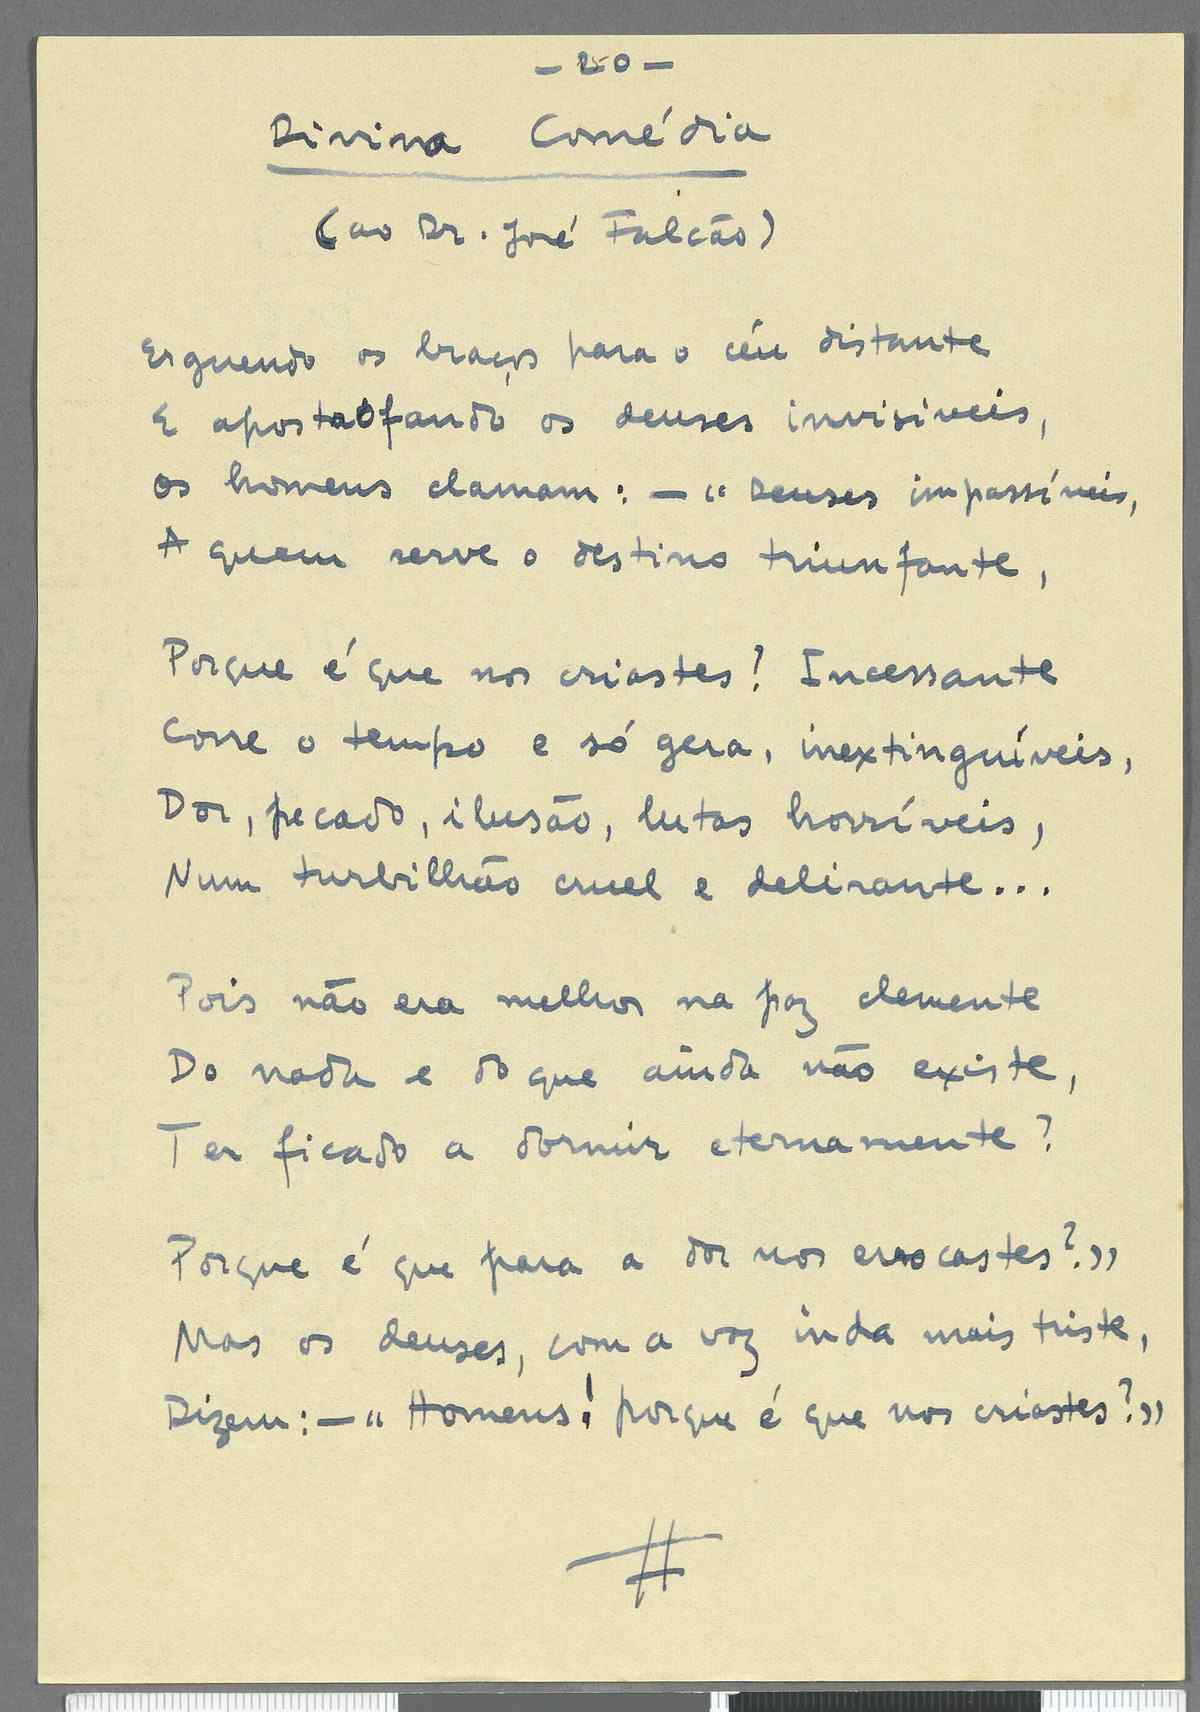 - 20 -
Divina Comédia
(ao Dr. José Falcão)
Erguendo os braços para o céu distante
E apostrofando os deuses invisiveis,
Os homens clamam: — "Deuses impassíveis,
A quem serve o destino triunfante,
Porque é que nos criastes? Incessante
Corre o tempo e só gera, inextinguíveis,
Dor, pecado, ilusão, lutas horríveis,
Num turbilhão cruel e delirante...
Pois não era melhor na paz clemente
Do nada e do que ainda não existe,
Ter ficado a dormir eternamente?
Porque é que para a dor nos evocastes?"
Mas os deuses, com a voz inda mais triste,
Dizem: — "Homens! porque é que nos criastes?"